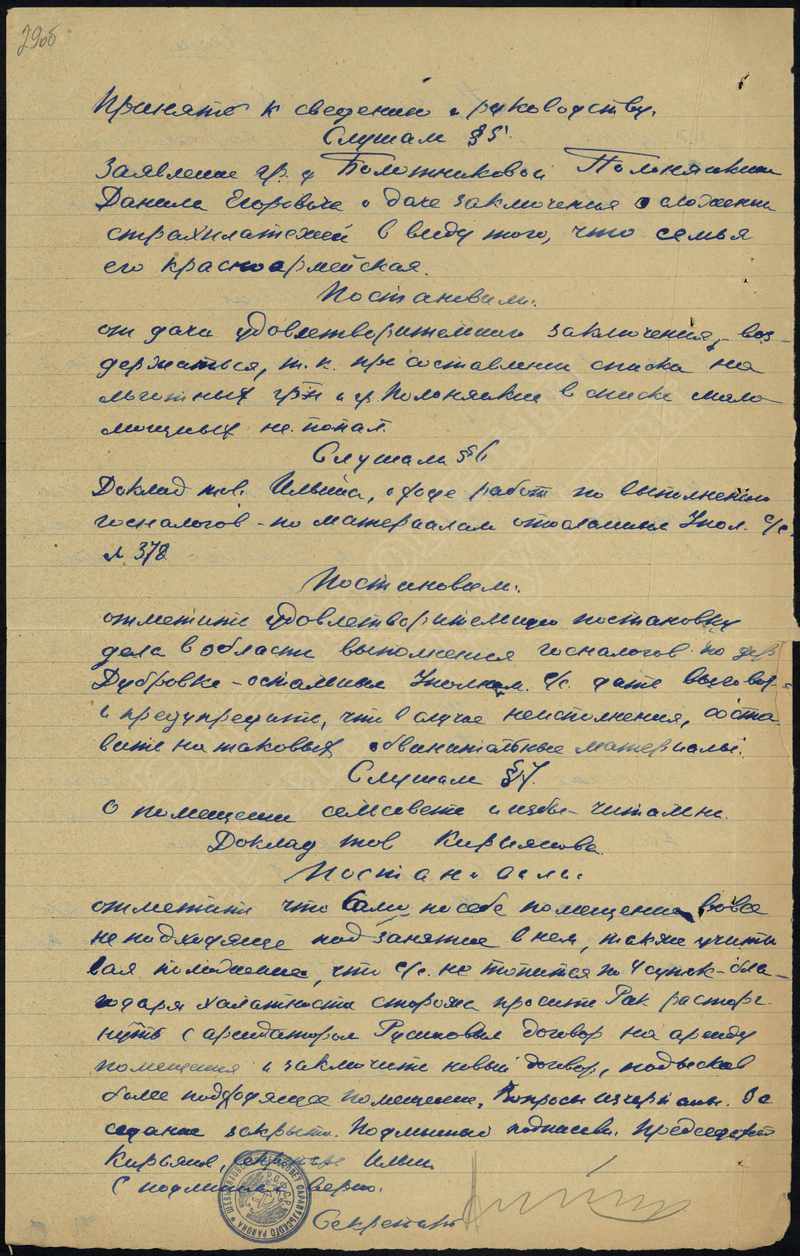 29об
Принять к сведению и руководству.
Слушали § 5.
Заявление гр. д Болотниковой Полонянкин
Данила Егоровича о даче заключения о сложении
страхплатежей в виду того, что семья
его красноармейская.
Постановили:
от дачи удовлетворительного заключения, воз-
держаться, т.к. при составлении списка на
льготных гр-н и гр. Полонянкин в списке мало-
мощных не попал.
Слушали § 6
Доклад тов. Ильина, о ходе работ по выполнению
госналогов - по материалам отосланным Упол. с/с.
№ 378
Постановили:
отметить удовлетворительную постановку
дела в области выполнения госналогов по дер
Дубровке - остальным Уполном. с/с. дать выговор
и предупредить, что в случае неисполнения, соста-
вить на таковых обвинительные материалы.
Слушали § 7.
О помещении сельсовета и избы-читальни.
Доклад тов Кирьянова.
Постановили:
отметить что само по себе помещение вовсе
не подходяще под занятие в нем, также учиты
вая положение, что с/с. не топится по 4 суток - бла-
годаря халатности сторожа просить Рик расторг-
нуть с арендатором договор на аренду
помещения и заключить новый договор, подыскав
более подходящее помещение. Вопросы исчерпаны. За
седание закрыто. Подлинный подписали. Председатель
Кирьянов, секретарь Ильин
С подлинным верно.
Секретарь
САРАПУЛЬСКОГО РАЙОНА
Р.С.Ф.С.Р.